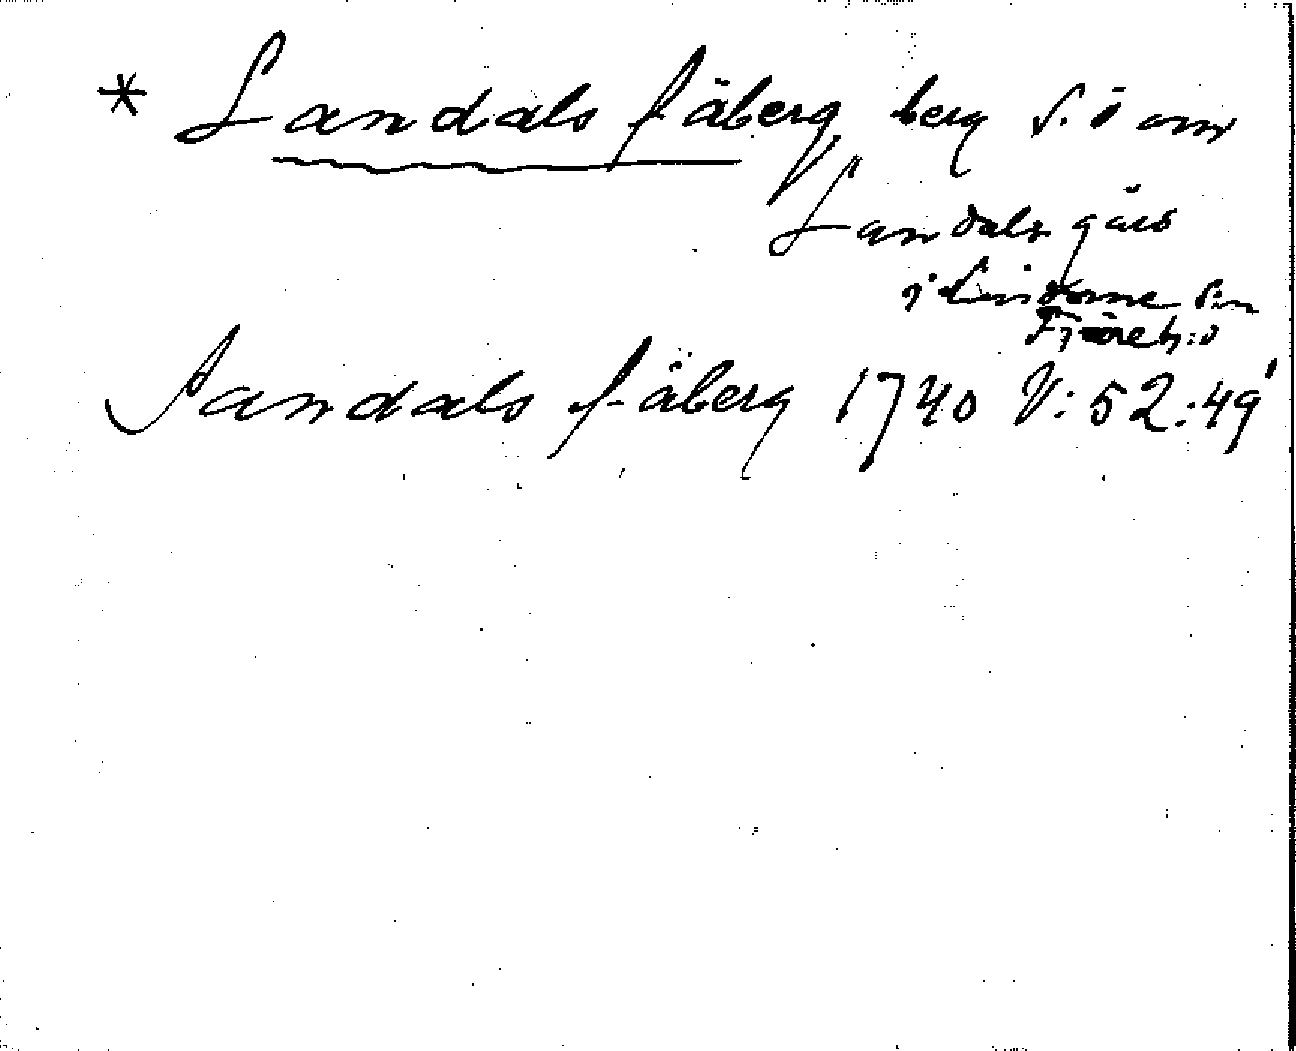 * Landals fäberg berg s.ö om
Landals gård
i Lindome sn
Fjäre h:d
Landals fäberg 1740 V:52:49